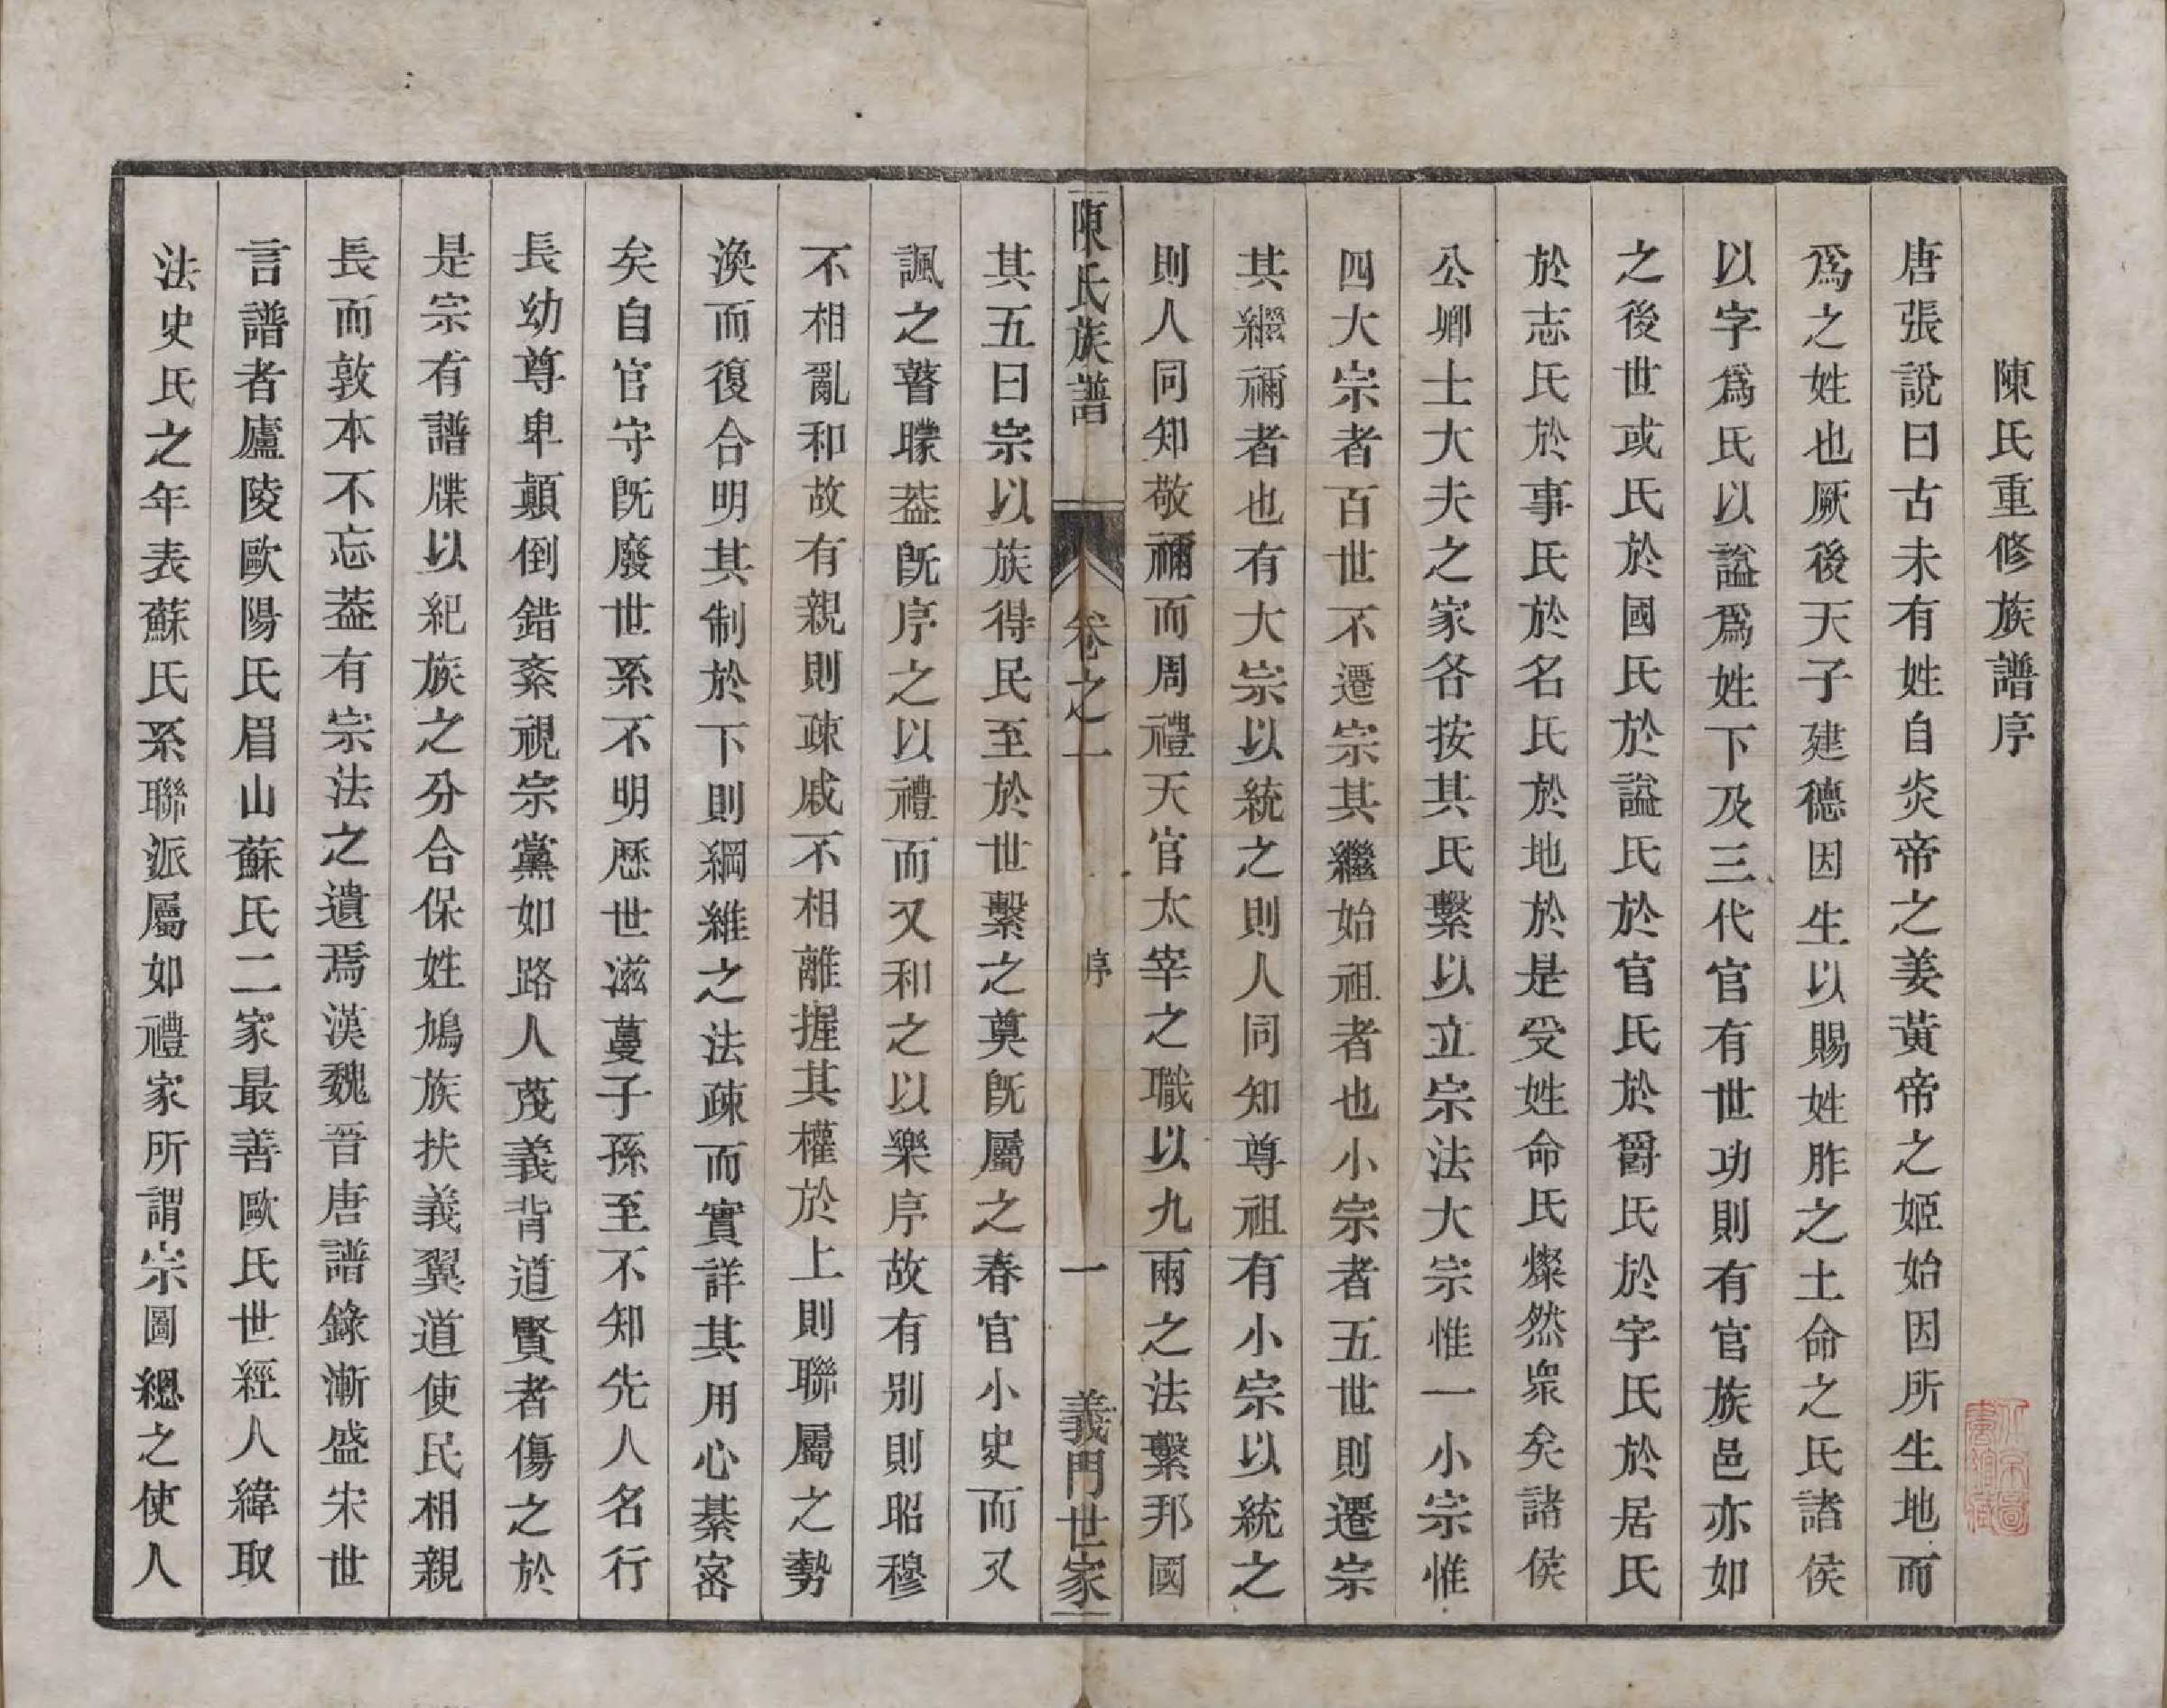 陳氏重修族譜序
唐張說曰古未有姓自炎帝之姜黃帝之姬始因所生地而
爲之姓也厥後天子建德因生以賜姓胙之土命之氏諸侯
以字爲氏以謚爲姓下及三代官有世功則有官族邑亦如
之後世或氏於國氏於謚氏於官氏於爵氏於字氏於居氏
於志氏於事氏於名氏於地於是受姓命氏燦然衆矣諸侯
公卿士大夫之家各按其氏繫以立宗法大宗惟一小宗惟
四大宗者百世不遷宗其繼始祖者也小宗者五世則遷宗
其繼禰者也有大宗以統之則人同知尊祖有小宗以統之
則人同知敬禰而周禮天官太宰之職以九兩之法繫邦國
陳氏族譜 卷之一 序 一 義門世家
其五曰宗以族得民至於世繫之奠旣屬之春官小史而又
諷之瞽矇葢旣序之以禮而又和之以樂序故有別則昭穆
不相亂和故有親則疎戚不相離握其權於上則聯屬之勢
渙而復合明其制於下則綱維之法疎而實詳其用心綦宻
矣自官守旣廢世系不明歷世滋蔓子孫至不知先人名行
長幼尊卑顛倒錯紊視宗黨如路人蔑義背道賢者傷之於
是宗有譜牒以紀族之分合保姓鳩族扶義翼道使民相親
長而敦本不忘葢有宗法之遺焉漢魏晉唐譜錄漸盛宋世
言譜者廬陵歐陽氏眉山蘇氏二家最善歐氏世經人緯取
法史氏之年表蘇氏系聯派屬如禮家所謂宗圖總之使人